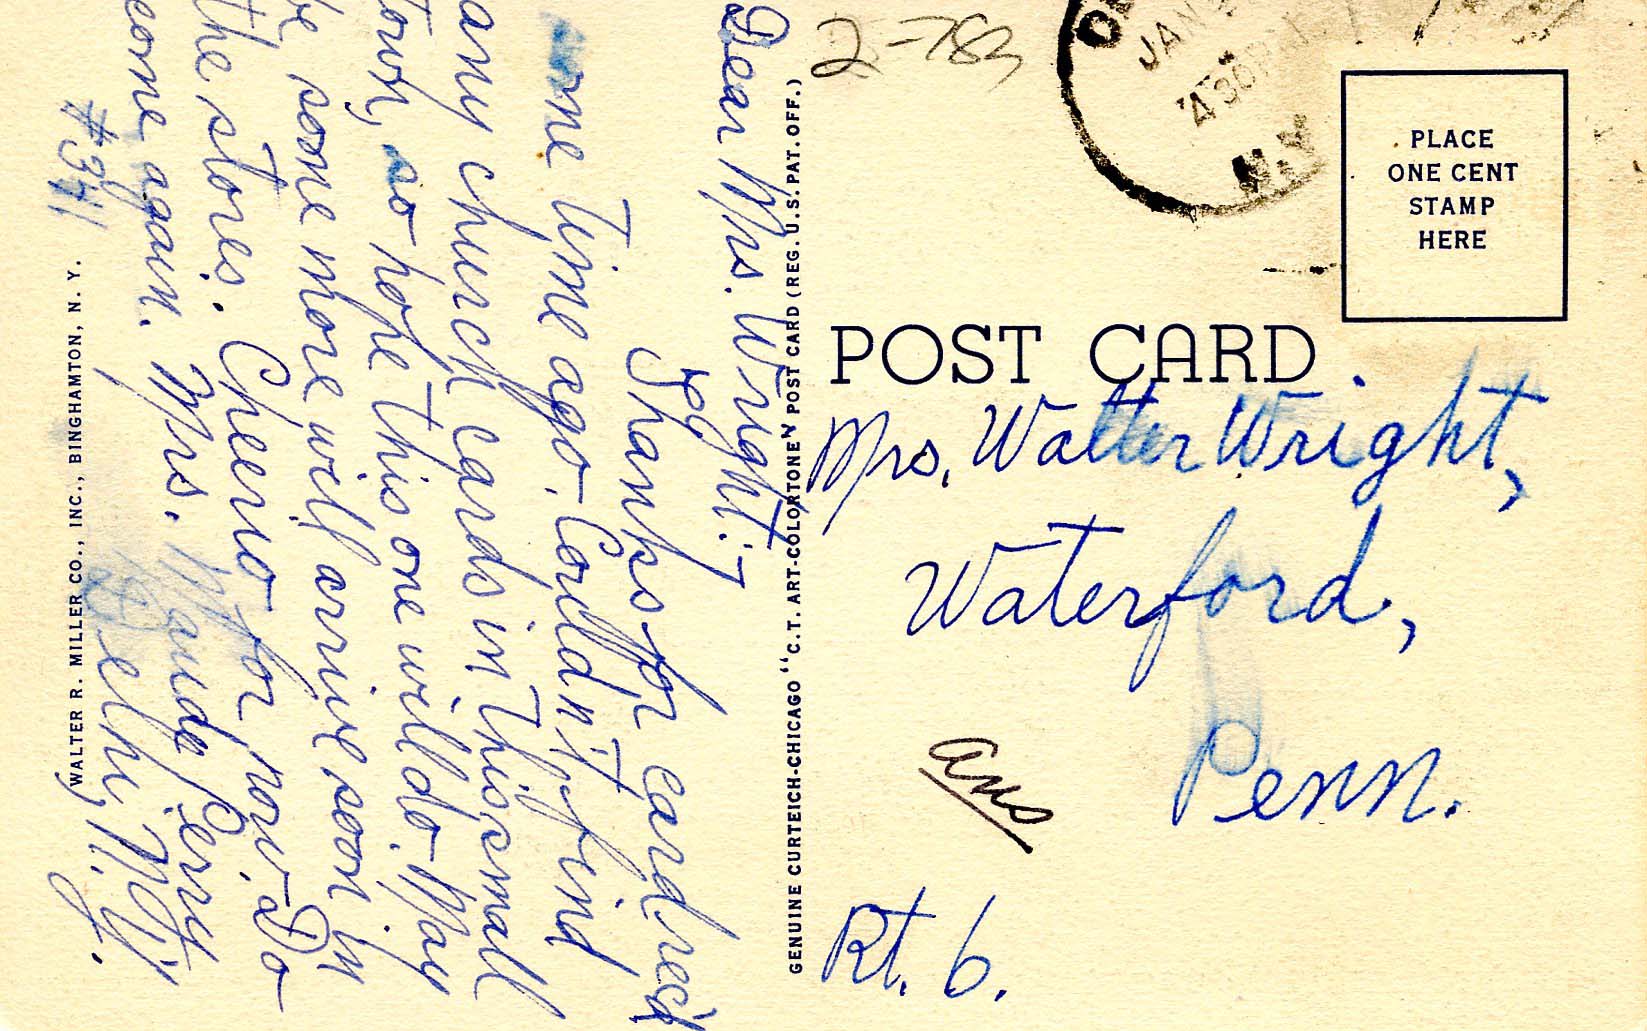 Dear Mrs. Wright:-
Thanks for card rec'd
time ago. Couldn't find
any church cards in this small
town, so hope this one will do. May
be some more will arrive soon in
the stores. Cheerio for now. Do
come again. Mrs. Maude Perry
#341
N.Y.
WALTER R. MILLER CO., INC., BINGHAMTON, N. Y.
GENUINE CURTEICH-CHICAGO "C.T. ART-COLORTONE" POST CARD (REG. U.S. PAT. OFF.)
2-783
JAN
430 PM
N.Y.
PLACE
ONE CENT
STAMP
HERE
POST CARD
Mrs. Walter Wright,
Waterford,
Penn.
ans
Rt. 6.